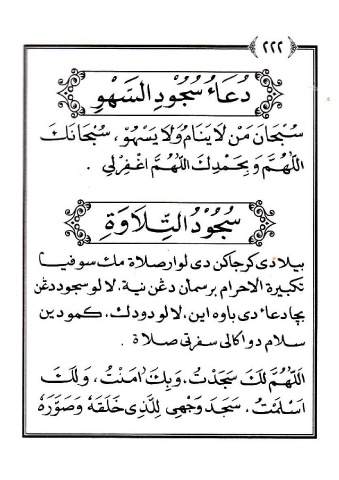 ٢٢٢
دُعَاءُ سُجُوْدِ السَّهْوِ
سُبْحَانَ مَنْ لَا يَنَامُ وَلَا يَسْهُوْ، سُبْحَانَكَ
اللّٰهُمَّ وَبِحَمْدِكَ اللّٰهُمَّ اغْفِرْلِي.
سُجُوْدُ التِّلَاوَةِ
بيلا دي كرجاكن دي لوار صلاة مك سوفيا
تكبيرة الاحرام برسمان دغن نية، لالو سجود دغن
بچا دعاء دي باوه اين، لالو دودك، كمودين
سلام دوا كالي سفرتي صلاة.
اَللّٰهُمَّ لَكَ سَجَدْتُ، وَبِكَ اٰمَنْتُ، وَلَكَ
اَسْلَمْتُ، سَجَدَ وَجْهِيَ لِلَّذِي خَلَقَهُ وَصَوَّرَهُ